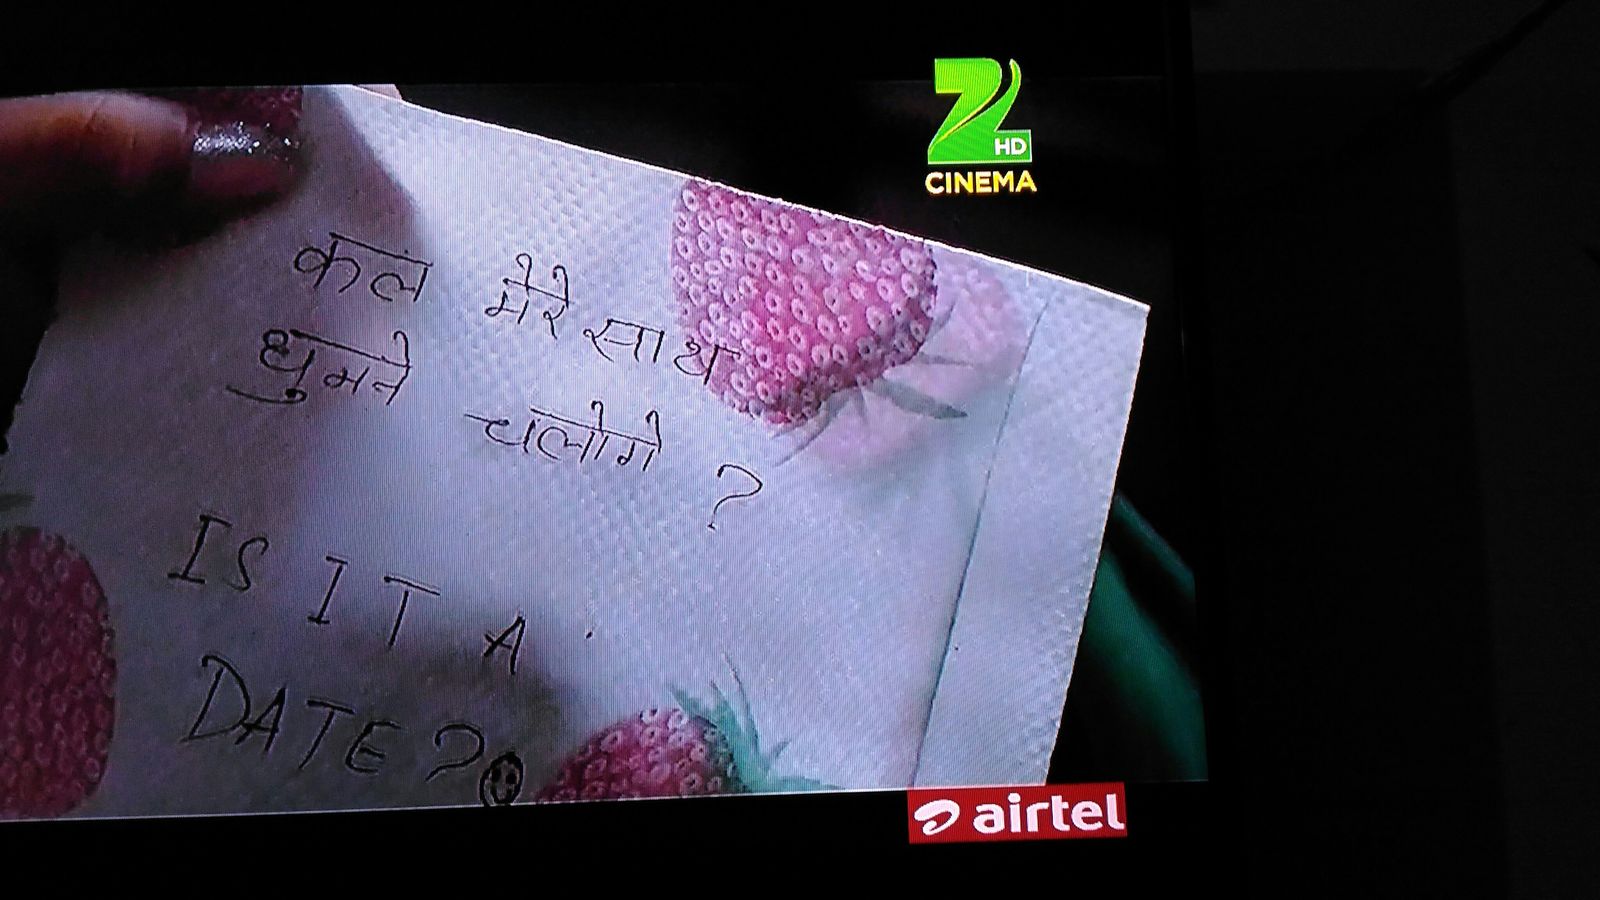 HD
CINEMA
कल मेरे साथ
घुमने चलोगे ?
IS IT A
DATE ?
airtel